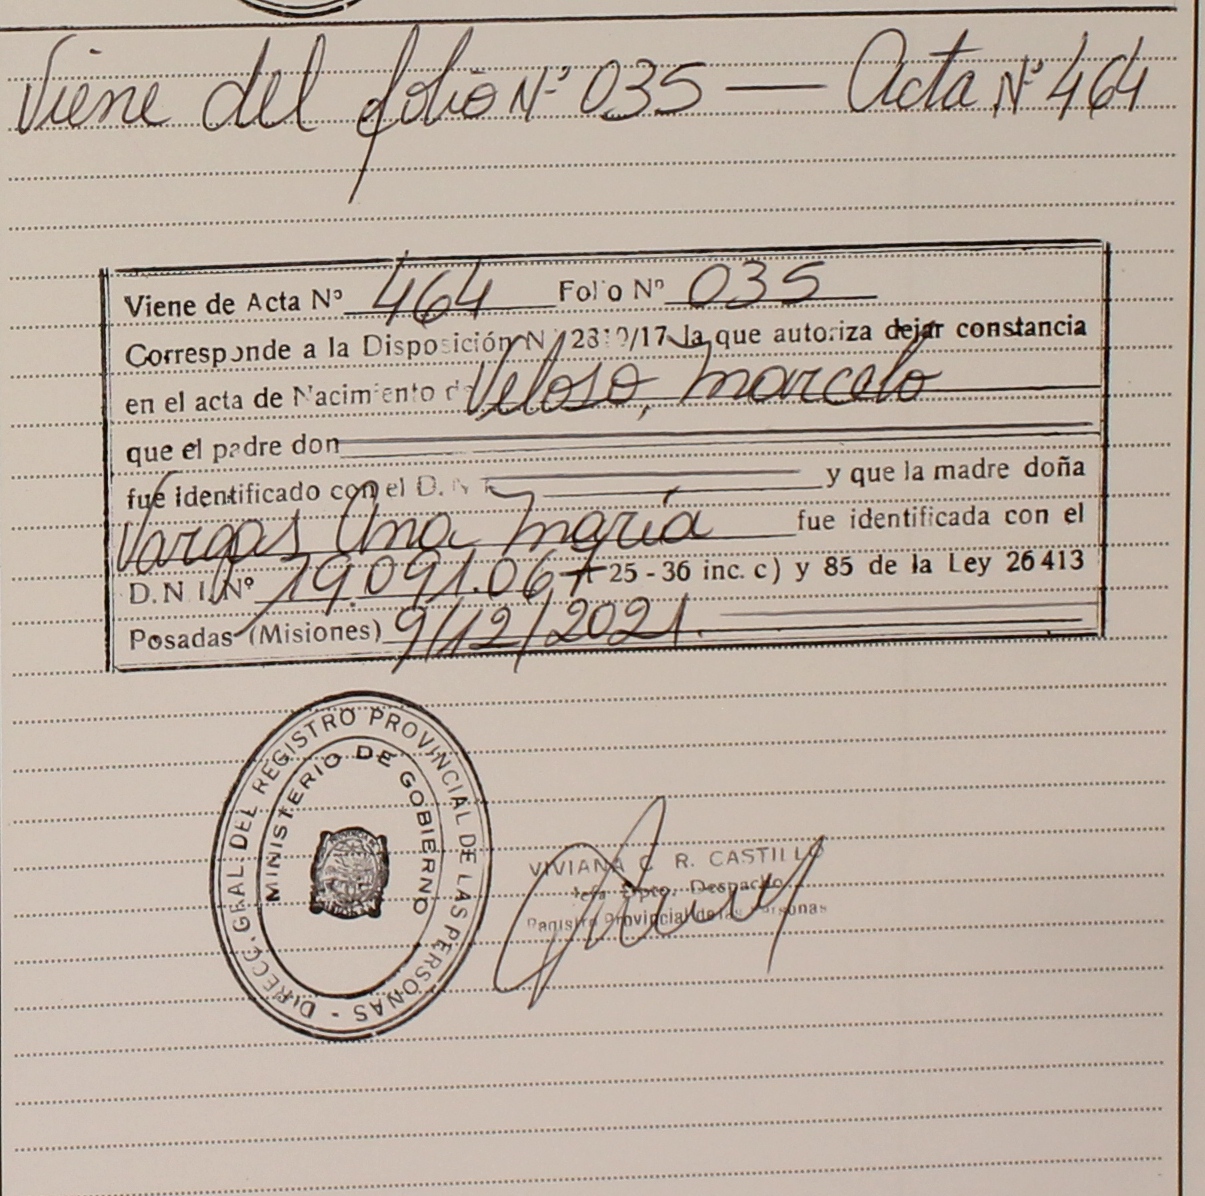 Viene del folio Nº 035 — Acta Nº 464
Viene de Acta Nº 464 Folio Nº 035
Corresponde a la Disposición N 2310/17 la que autoriza dejar constancia
en el acta de Nacimiento de Veloso, Marcelo
que el padre don
fue identificado con el D. N I y que la madre doña
Vargas Ana María fue identificada con el
D.N I. Nº 19.091.067 25 - 36 inc. c) y 85 de la Ley 26 413
Posadas (Misiones) 9/12/2021.
DIRECC. GRAL. DEL REGISTRO PROVINCIAL DE LAS PERSONAS -
MINISTERIO DE GOBIERNO
VIVIANA C R. CASTILLO
Jefa Dpto. Despacho
Registro Provincial de las Personas